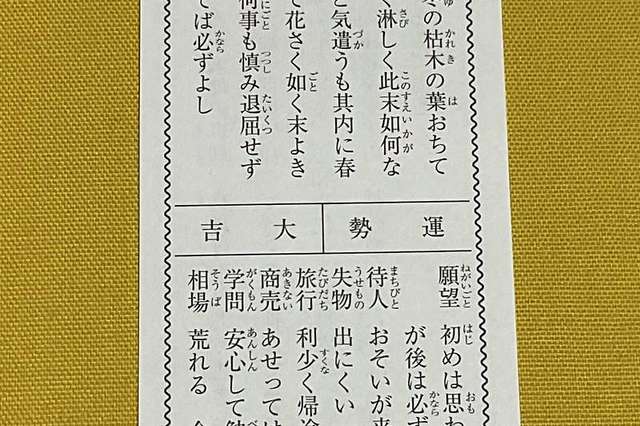 の枯木の葉おちて
く淋しく此末如何な
と気遣うも其内に春
て花さく如く末よき
何事も慎み退屈せず
てば必ずよし
運勢 大吉
願望 初めは思わ
が後は必ず
待人 おそいが来
失物 出にくい
旅行 利少く帰途
商売 あせっては
学問 安心して勉
相場 荒れる